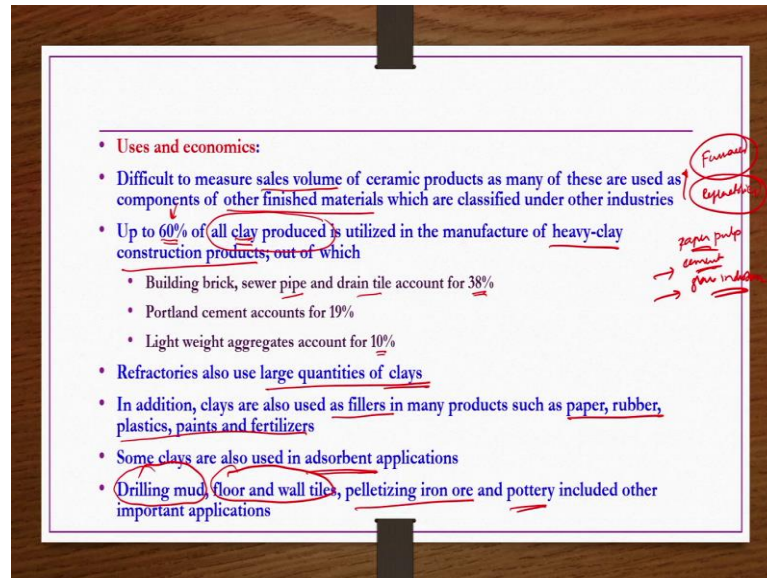 • Uses and economics:
• Difficult to measure sales volume of ceramic products as many of these are used as
components of other finished materials which are classified under other industries
• Up to 60% of all clay produced is utilized in the manufacture of heavy-clay
construction products; out of which
• Building brick, sewer pipe and drain tile account for 38%
• Portland cement accounts for 19%
• Light weight aggregates account for 10%
• Refractories also use large quantities of clays
• In addition, clays are also used as fillers in many products such as paper, rubber,
plastics, paints and fertilizers
• Some clays are also used in adsorbent applications
• Drilling mud, floor and wall tiles, pelletizing iron ore and pottery included other
important applications
paper pulp
cement